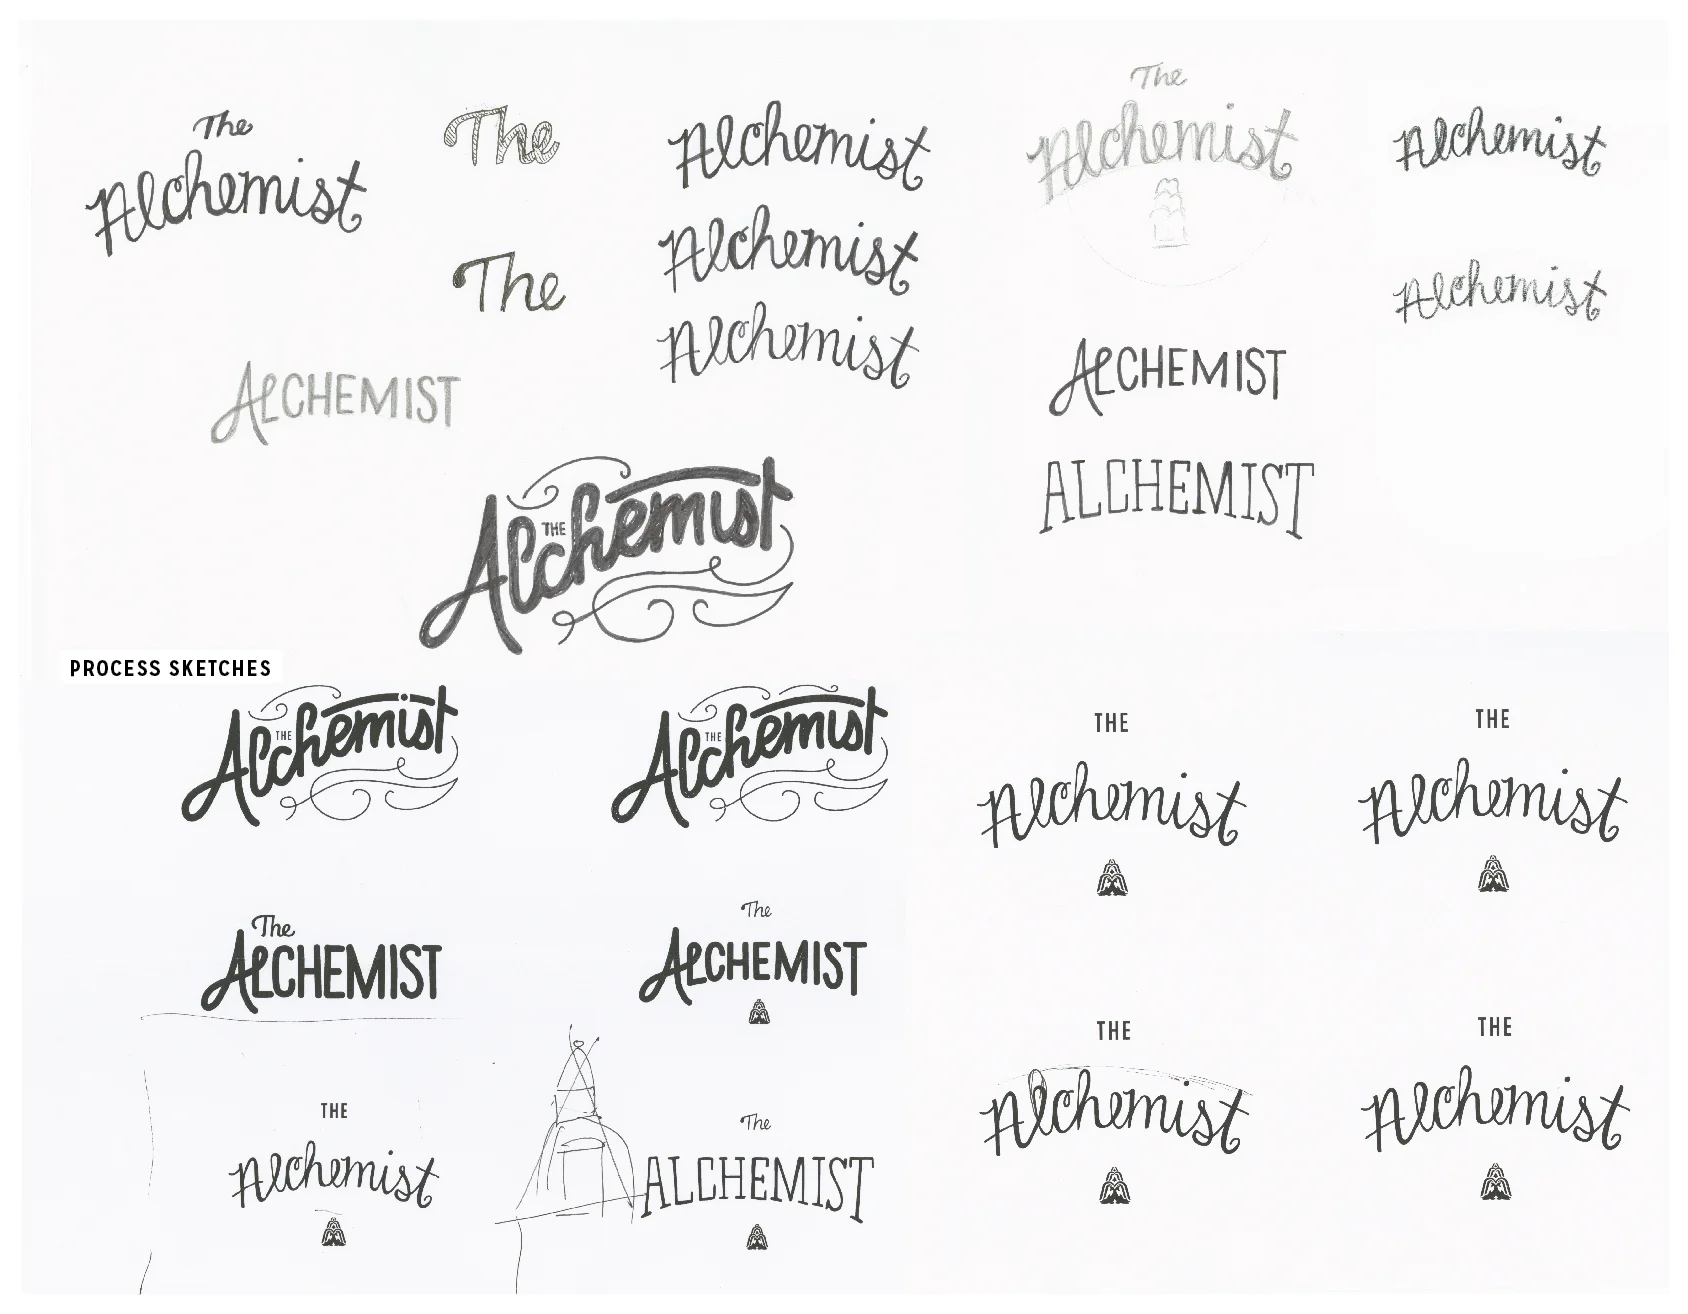 The
Alchemist
The
The
Alchemist
Alchemist
Alchemist
The
Alchemist
Alchemist
Alchemist
ALCHEMIST
ALCHEMIST
ALCHEMIST
THE
Alchemist
PROCESS SKETCHES
THE
Alchemist
THE
Alchemist
The
ALCHEMIST
The
ALCHEMIST
THE
Alchemist
The
ALCHEMIST
THE
Alchemist
THE
Alchemist
THE
Alchemist
THE
Alchemist